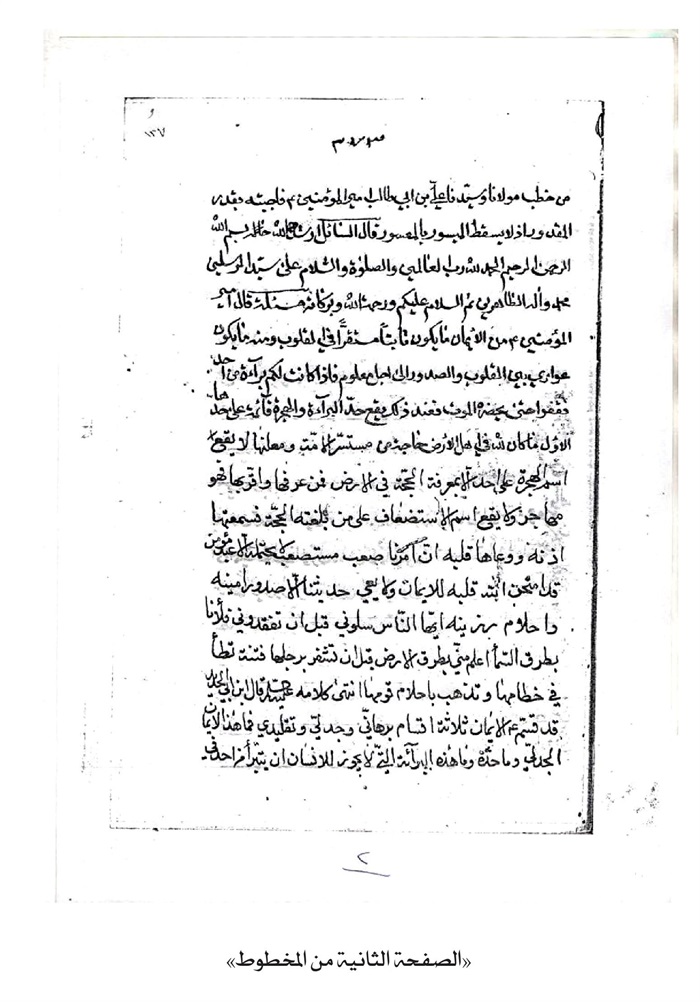 و
١٣٧
من خطب مولانا وسيدنا علي بن ابي طالب امير المؤمنين ع فاجبته بقدر
المقدور اذ لا يسقط الميسور بالمعسور قال السائل بسم الله
الرحمن الرحيم الحمد لله رب العالمين والصلوة والسلام على سيد المرسلين
محمد وآله الطاهرين ثم السلام عليكم ورحمة الله وبركاته مسئلة قال امير
المؤمنين ع من الايمان ما يكون ثابتاً مستقراً في القلوب ومنه ما يكون
عواري بين القلوب والصدور الى اجل معلوم فاذا كانت لكم برآءة من احد
فقفوه حتى يحضره الموت فعند ذلك يقع حد البرآءة والهجرة قائمة على حدها
الاول ما كان لله في اهل الارض حاجة من مستسر الامة ومعلنها لا يقع
اسم الهجرة على احد الا بمعرفة الحجة في الارض فمن عرفها واقر بها فهو
مهاجر ولا يقع اسم الاستضعاف على من بلغته الحجة فسمعتها
اذنه ووعاها قلبه ان امرنا صعب مستصعب لا يحتمله الا عبد مؤمن
قد امتحن الله قلبه للايمان ولا يعي حديثنا الا صدور امينه
واحلام رزينه ايها الناس سلوني قبل ان تفقدوني فلأنا
بطرق السماء اعلم مني بطرق الارض قبل ان تشغر برجلها فتنة تطأ
في خطامها وتذهب باحلام قومها انتهى كلامه قال ابن ابي الحديد
قد قسم ع الايمان ثلاثة اقسام برهاني وجدلي وتقليدي فما هذا الايمان
الجدلي وما حده وما هذه البرآئة التي لا يجوز للانسان ان يتبرأ من احد في
٢
«الصفحة الثانية من المخطوط»